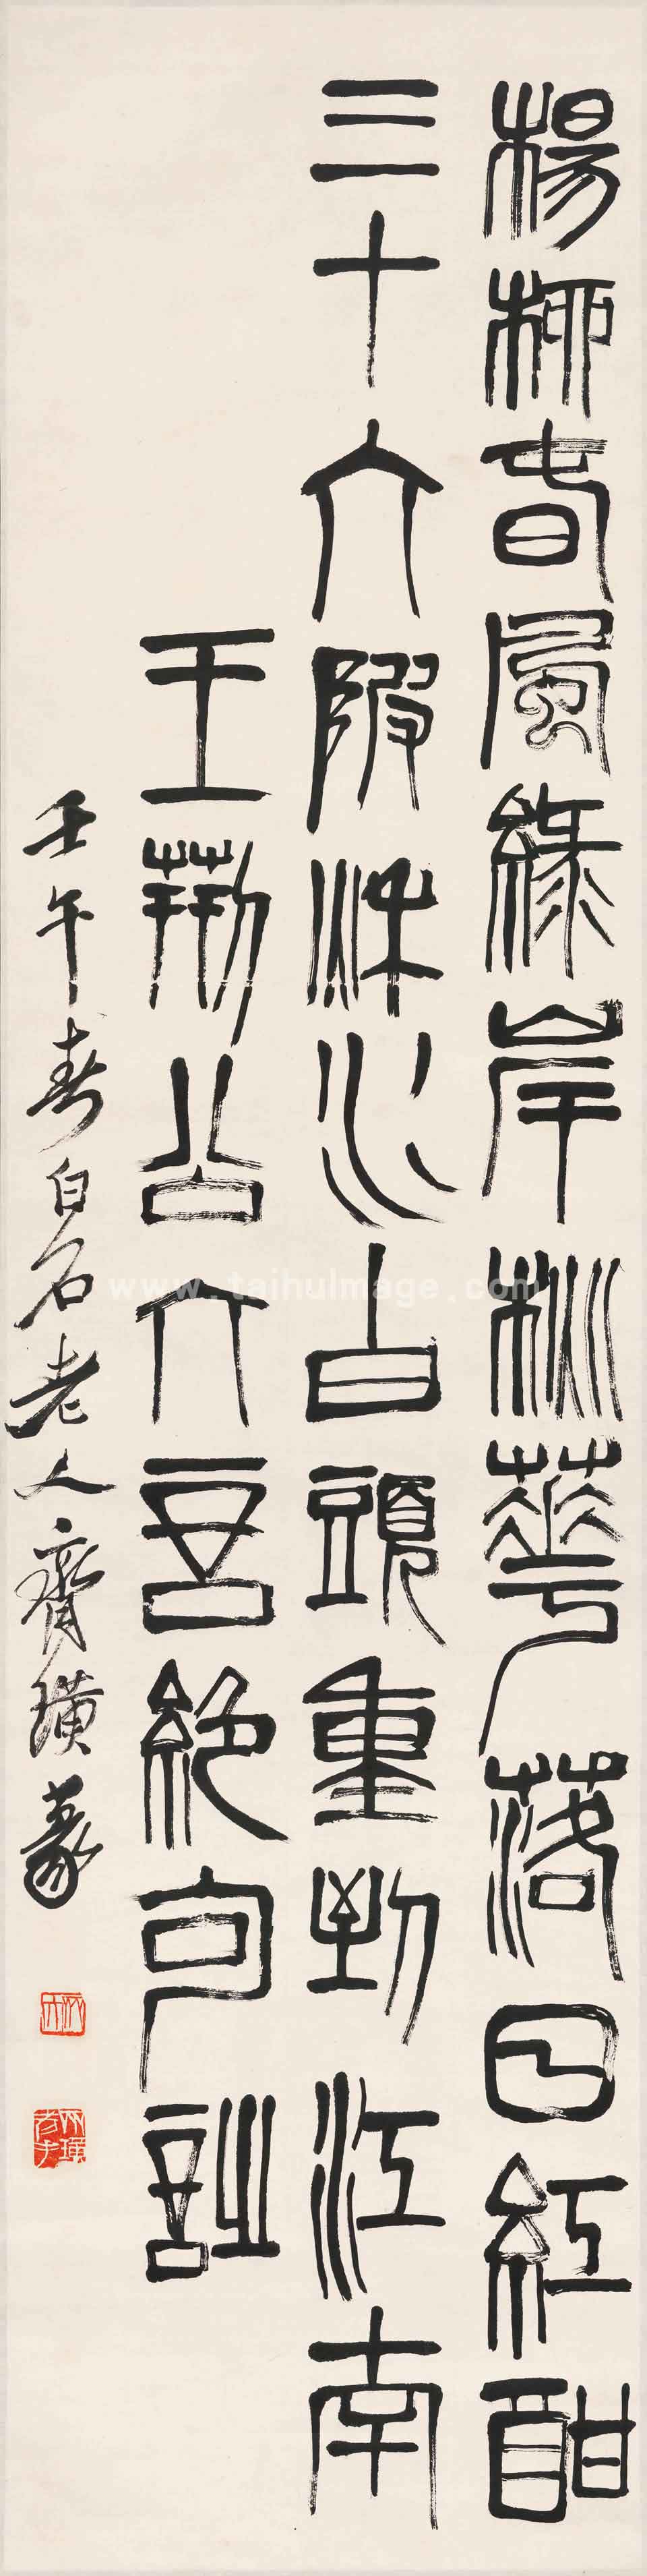 楊柳春風綠岸桃華落日紅酣
三十六陂水白頭重到江南
王荊公六言絕句詩
壬午春白石老人齊璜篆
www.taihuImage.com